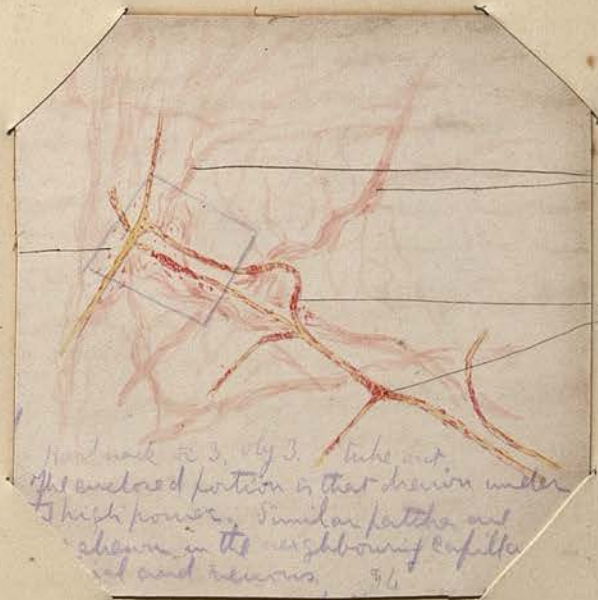 Hartnack Oc 3. Obj 3. tube out
The enclosed portion is that drawn under
high power. Similar patches are
shown in the neighbouring capilla
and